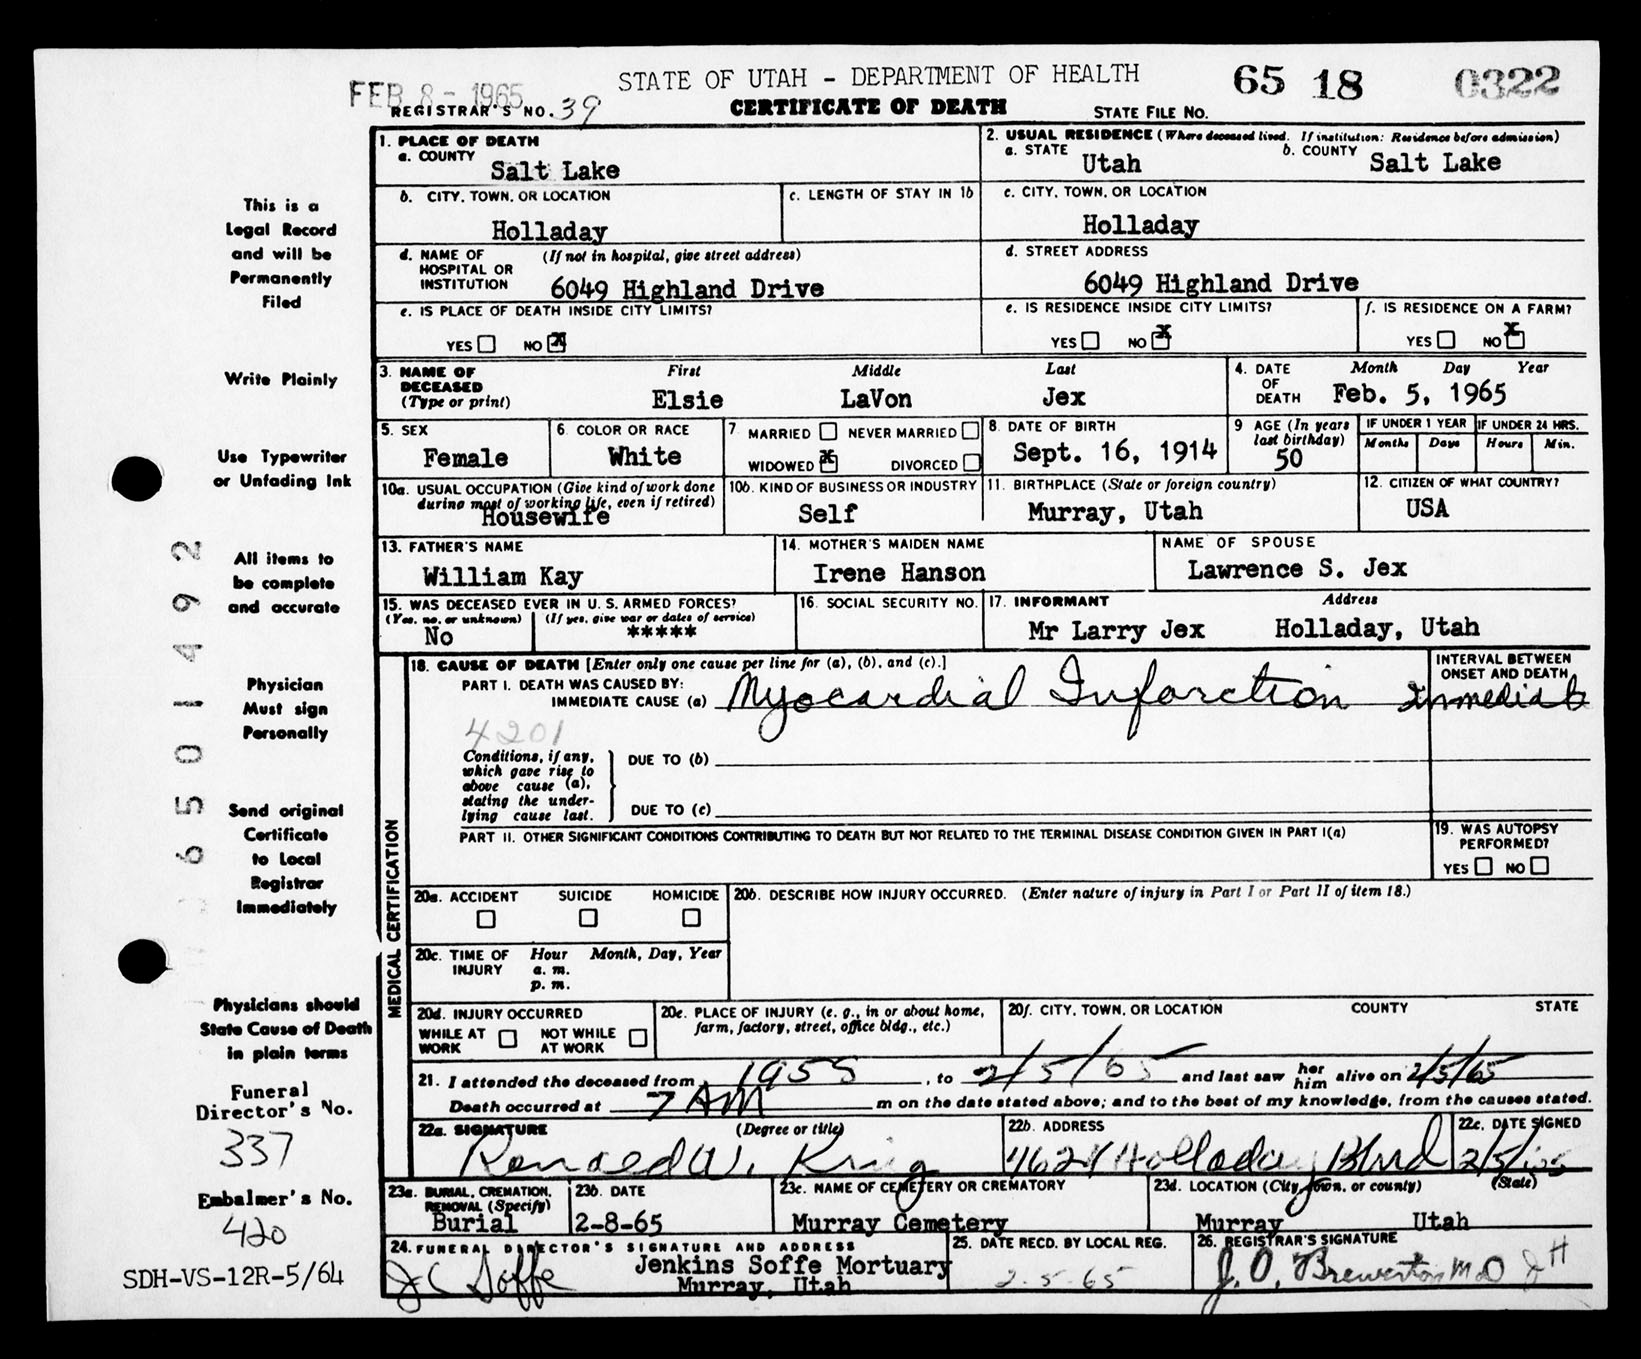 STATE OF UTAH - DEPARTMENT OF HEALTH
65 18 0322
FEB 8 - 1965
REGISTRAR'S NO. 39
CERTIFICATE OF DEATH
STATE FILE NO.
This is a
Legal Record
and will be
Permanently
Filed
Write Plainly
Use Typewriter
or Unfading Ink
All items to
be complete
and accurate
Physician
Must sign
Personally
Send original
Certificate
to Local
Registrar
Immediately
Physicians should
State Cause of Death
in plain terms
Funeral
Director's No.
337
Embalmer's No.
420
SDH-VS-12R-5/64
6501492
1. PLACE OF DEATH
a. COUNTY
Salt Lake
2. USUAL RESIDENCE (Where deceased lived. If institution: Residence before admission)
a. STATE Utah b. COUNTY Salt Lake
b. CITY, TOWN, OR LOCATION
Holladay
c. LENGTH OF STAY IN 1b
c. CITY, TOWN, OR LOCATION
Holladay
d. NAME OF HOSPITAL OR INSTITUTION (If not in hospital, give street address)
6049 Highland Drive
d. STREET ADDRESS
6049 Highland Drive
e. IS PLACE OF DEATH INSIDE CITY LIMITS?
YES NO X
e. IS RESIDENCE INSIDE CITY LIMITS?
YES NO X
f. IS RESIDENCE ON A FARM?
YES NO X
3. NAME OF DECEASED (Type or print) First Middle Last
Elsie LaVon Jex
4. DATE OF DEATH Month Day Year
Feb. 5, 1965
5. SEX
Female
6. COLOR OR RACE
White
7. MARRIED NEVER MARRIED
WIDOWED X DIVORCED
8. DATE OF BIRTH
Sept. 16, 1914
9 AGE (In years last birthday)
50
IF UNDER 1 YEAR
Months Days
IF UNDER 24 HRS.
Hours Min.
10a. USUAL OCCUPATION (Give kind of work done during most of working life, even if retired)
Housewife
10b. KIND OF BUSINESS OR INDUSTRY
Self
11. BIRTHPLACE (State or foreign country)
Murray, Utah
12. CITIZEN OF WHAT COUNTRY?
USA
13. FATHER'S NAME
William Kay
14. MOTHER'S MAIDEN NAME
Irene Hanson
NAME OF SPOUSE
Lawrence S. Jex
15. WAS DECEASED EVER IN U. S. ARMED FORCES?
(Yes, no, or unknown) (If yes, give war or dates of service)
No *****
16. SOCIAL SECURITY NO.
17. INFORMANT Address
Mr Larry Jex Holladay, Utah
MEDICAL CERTIFICATION
18. CAUSE OF DEATH [Enter only one cause per line for (a), (b), and (c).]
INTERVAL BETWEEN
ONSET AND DEATH
PART I. DEATH WAS CAUSED BY:
IMMEDIATE CAUSE (a) Myocardial Infarction Immediate
4201
Conditions, if any,
which gave rise to
above cause (a),
stating the under-
lying cause last.
DUE TO (b)
DUE TO (c)
PART II. OTHER SIGNIFICANT CONDITIONS CONTRIBUTING TO DEATH BUT NOT RELATED TO THE TERMINAL DISEASE CONDITION GIVEN IN PART I(a)
19. WAS AUTOPSY
PERFORMED?
YES NO
20a. ACCIDENT SUICIDE HOMICIDE
20b. DESCRIBE HOW INJURY OCCURRED. (Enter nature of injury in Part I or Part II of item 18.)
20c. TIME OF INJURY Hour Month, Day, Year
a. m.
p. m.
20d. INJURY OCCURRED
WHILE AT WORK NOT WHILE AT WORK
20e. PLACE OF INJURY (e. g., in or about home, farm, factory, street, office bldg., etc.)
20f. CITY, TOWN, OR LOCATION COUNTY STATE
21. I attended the deceased from 1955, to 2/5/65 and last saw her him alive on 2/5/65
Death occurred at 7 AM m on the date stated above; and to the best of my knowledge, from the causes stated.
22a. SIGNATURE (Degree or title)
Ronald W.
22b. ADDRESS
Holladay Blvd
22c. DATE SIGNED
2/5/65
23a. BURIAL, CREMATION, REMOVAL (Specify)
Burial
23b. DATE
2-8-65
23c. NAME OF CEMETERY OR CREMATORY
Murray Cemetery
23d. LOCATION (City, town, or county) (State)
Murray Utah
24. FUNERAL DIRECTOR'S SIGNATURE AND ADDRESS
Jenkins Soffe Mortuary
Murray, Utah
J C Soffe
25. DATE RECD. BY LOCAL REG.
2-5-65
26. REGISTRAR'S SIGNATURE
J. O. Brewerton MD JH